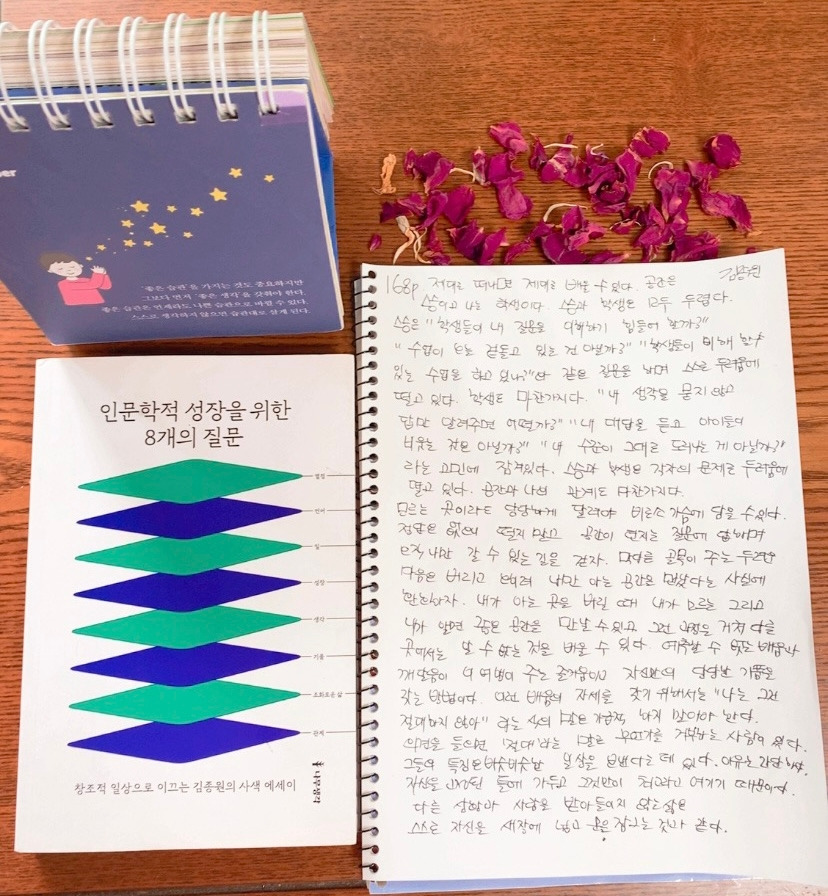 '좋은 습관'을 가지는 것도 중요하지만
그보다 먼저 '좋은 생각'을 갖춰야 한다.
좋은 습관은 언제라도 나쁜 습관으로 바뀔 수 있다.
스스로 생각하지 않으면 습관대로 살게 된다.
인문학적 성장을 위한
8개의 질문
성장
생각
기품
조화로운 삶
관계
창조적 일상으로 이끄는 김종원의 사색 에세이
나무생각
김종원
168p. 제대로 떠나면 제대로 배울 수 있다. 공간은
스승이고 나는 학생이다. 스승과 학생은 모두 두렵다.
스승은 "학생들이 내 질문을 이해하기 힘들어 할까?"
"수업이 겉돌고 있는 건 아닐까?" "학생들이
있는 수업을 하고 있나?"와 같은 질문을 하며 스스로 두려움에
떨고 있다. 학생도 마찬가지다. "내 생각을 묻지 않고
답만 알려주면 어떨까?" "내 대답을 듣고 아이들이
비웃는 것은 아닐까?" "내 수준이 그대로 드러나는 게 아닐까?"
라는 고민에 잠겨있다. 스승과 학생은 각자의 문제로 두려움에
떨고 있다. 공간과 나의 관계도 마찬가지다.
모르는 곳이라도 당당하게 달려야 비로소 가슴에 담을 수 있다.
정답은 없으니 떨지 말고 공간이 던지는 질문에 답하며
오직 나만 갈 수 있는 길을 걷자. 막다른 골목이 주는 두려운
마음은 버리고 반대로 나만 아는 공간을 만났다는 사실에
환호하자. 내가 아는 곳을 버릴 때 내가 모르는 그리고
내가 알면 좋을 공간을 만날 수 있고 그런 과정을 거쳐 다른
곳에서는 알 수 없는 것을 배울 수 있다. 예측할 수 없는 배움과
깨달음이 여행이 주는 즐거움이고 자신만의 당당한 기품을
갖는 방법이다. 이런 배움의 자세를 갖기 위해서는 "나는 그런
절대하지 않아" 라는 식의 말은 가급적 하지 말아야 한다.
의견을 들으면 '절대'라는 말로 무언가를 거부하는 사람이 있다.
그들의 특징은 비슷비슷한 일상을 보낸다는 데 있다. 이유는 간단하다.
자신을 틀에 가두고 그것만이 최고라고 여기기 때문이다.
다른 상황과 사람을 받아들이지 않는 삶은
스스로 자신을 새장에 넣고 문을 잠그는 것과 같다.